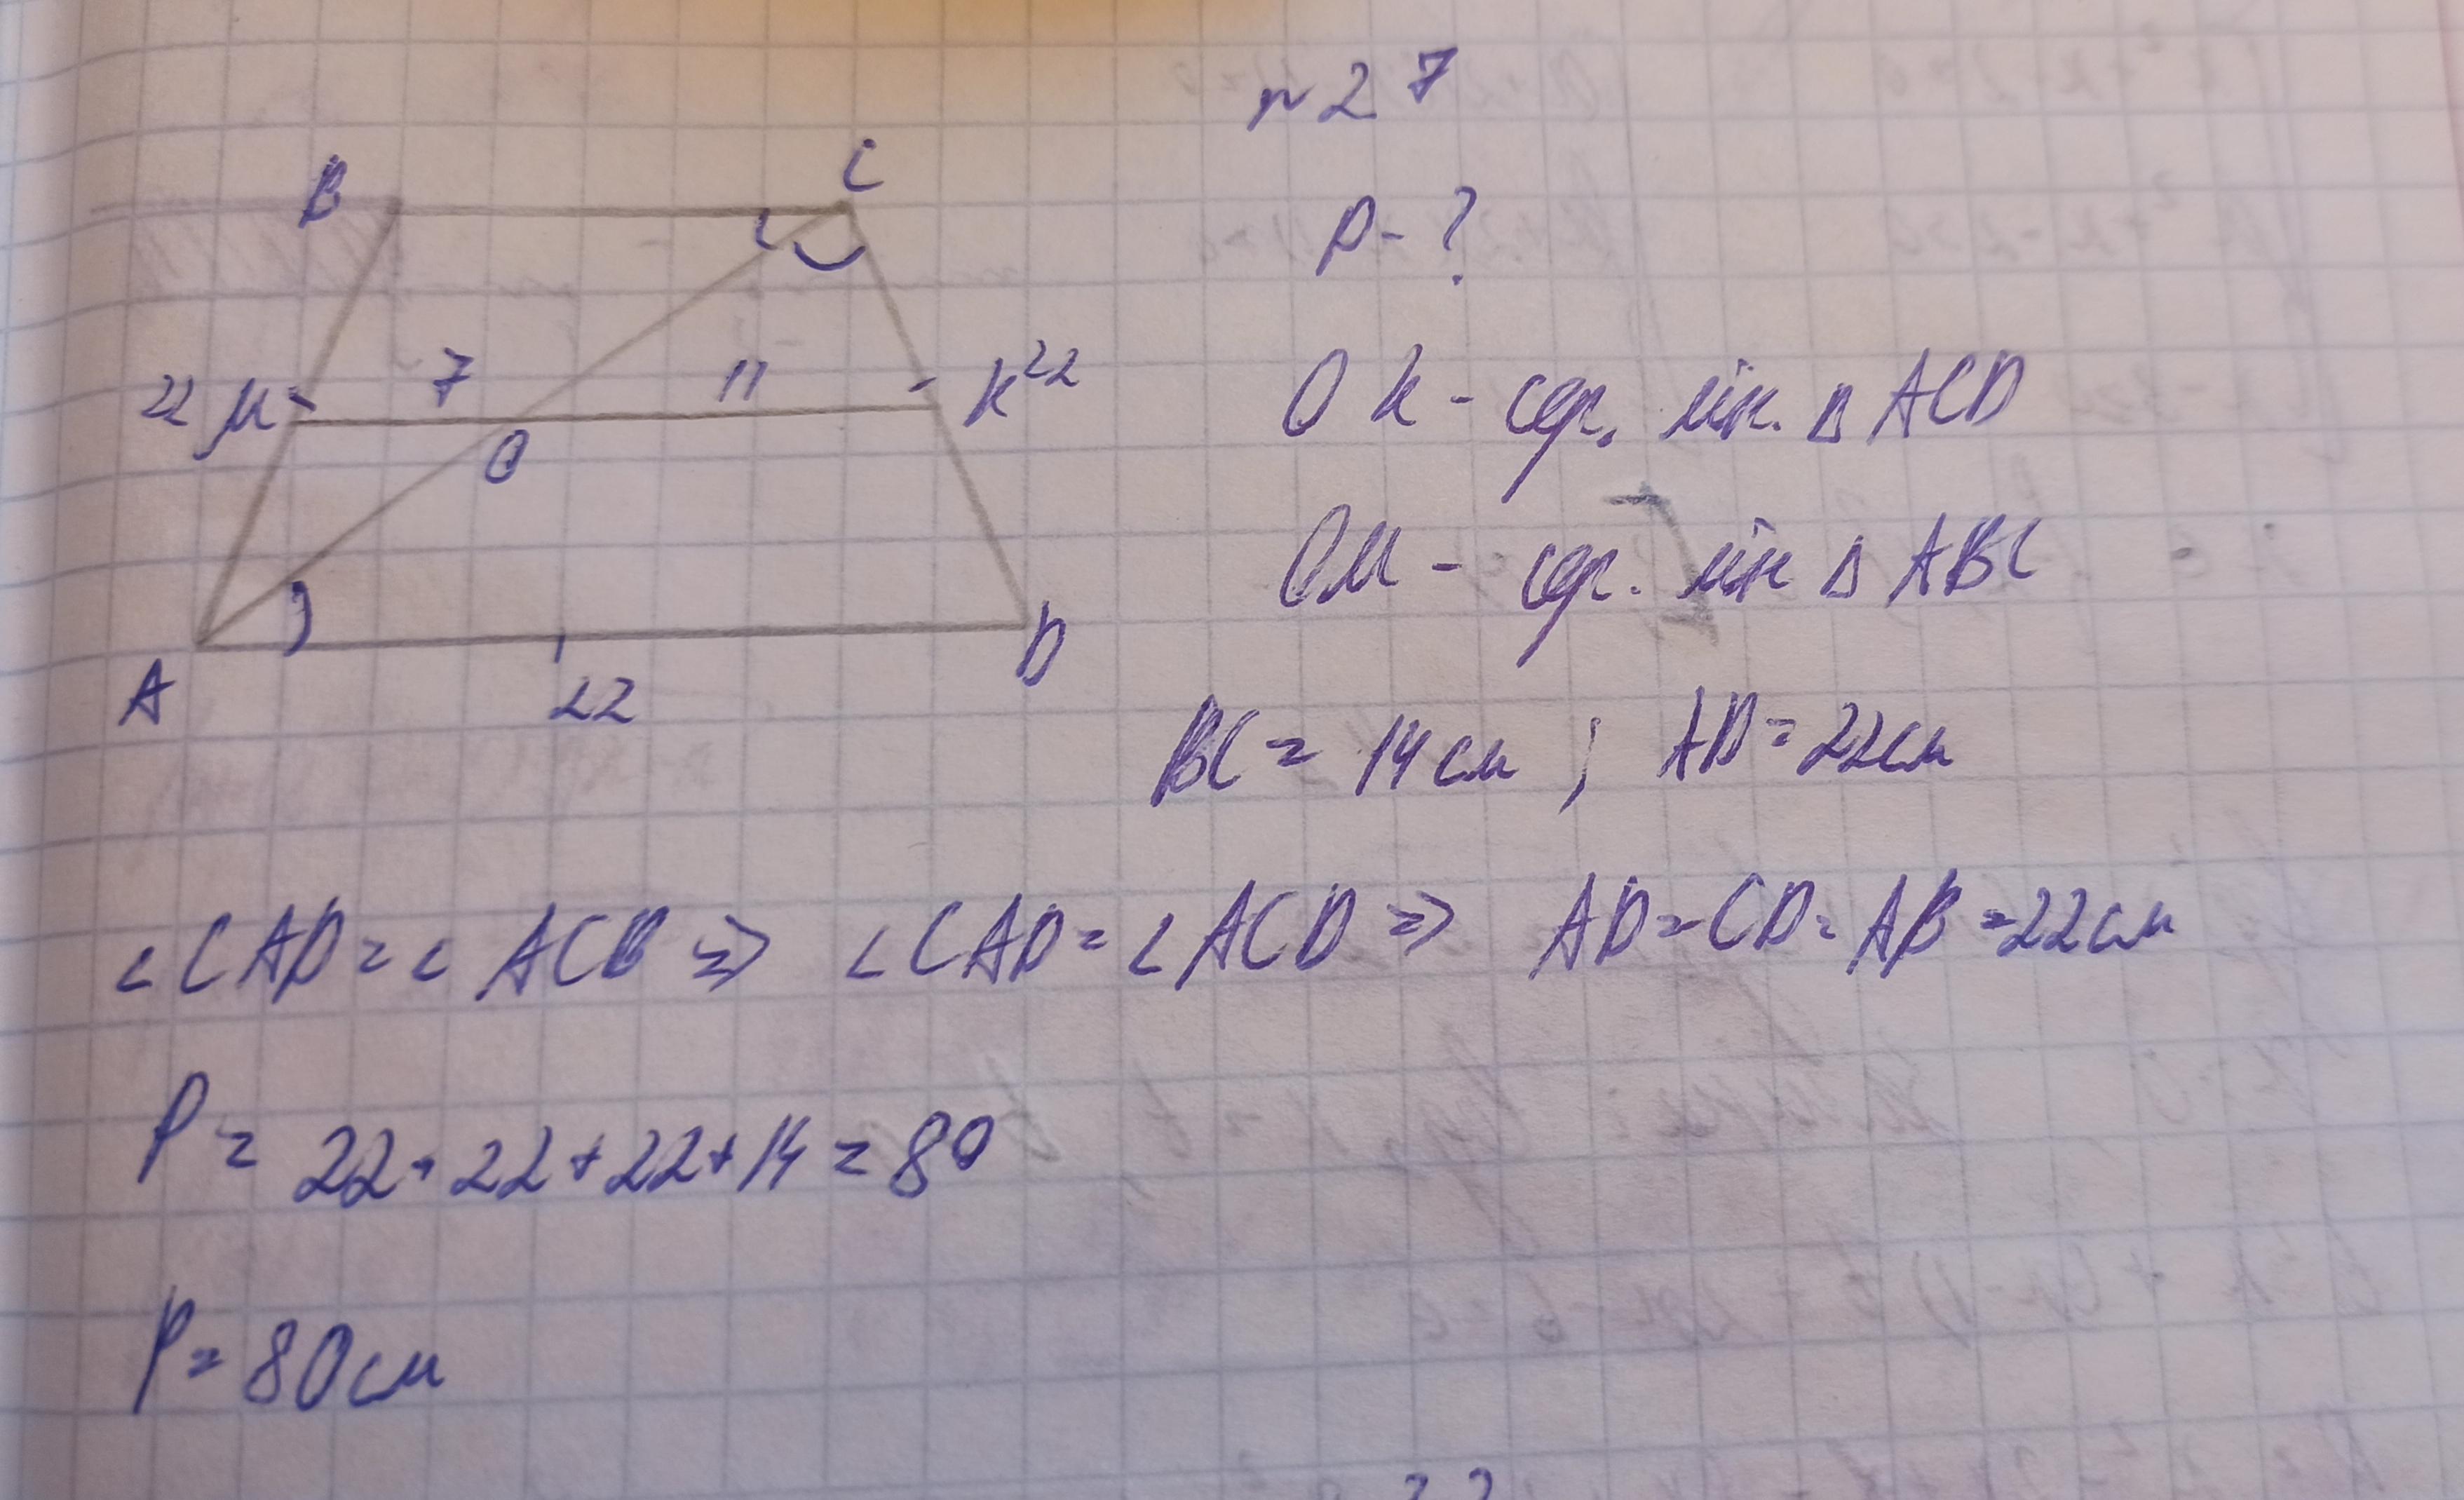 №27
B
C
P-?
22 M
7
11
K 22
O
OK - сер. лін. △ ACD
OM - сер. лін △ ABC
A
22
D
BC = 14 см ; AD = 22см
∠CAD = ∠ ACB ⇒ ∠CAD = ∠ACD ⇒ AD = CD = AB = 22см
P = 22 + 22 + 22 + 14 = 80
P = 80см